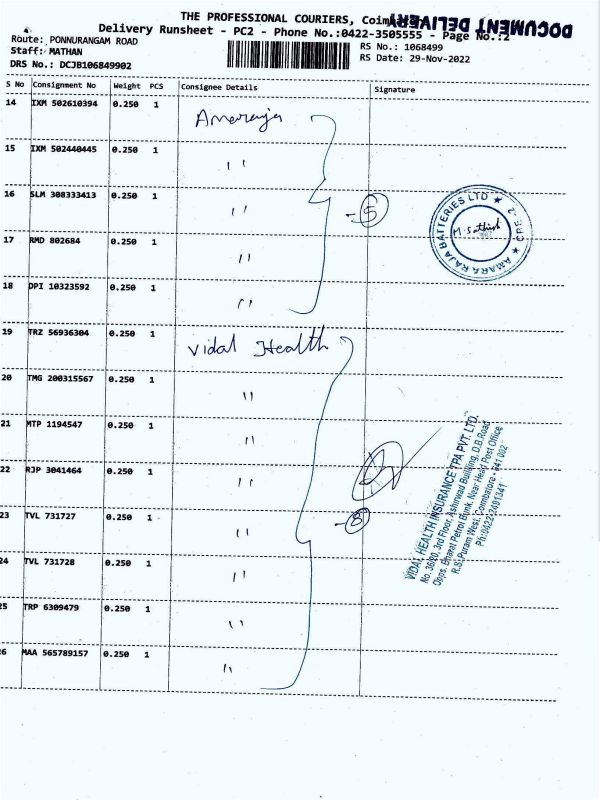 THE PROFESSIONAL COURIERS,
DOCUMENT DELIVERY
Delivery Runsheet - PC2 - Phone No.:0422-3505555 - Page No.:2
Route: PONNURANGAM ROAD
RS No.: 1068499
Staff: MATHAN
RS Date: 29-Nov-2022
DRS No.: DCJB106849902
S No Consignment No Weight PCS Consignee Details Signature
14 IXM 502610394 0.250 1 Amararaja
15 IXM 502440445 0.250 1 "
16 SLM 308333413 0.250 1 "
- 5
17 RMD 802684 0.250 1 "
18 DPI 10323592 0.250 1 "
AMARA RAJA BATTERIES LTD ★ CBE-2 ★
M. Sathish
19 TRZ 56936304 0.250 1 Vidal Health
20 TMG 200315567 0.250 1 "
21 MTP 1194547 0.250 1 "
22 RJP 3041464 0.250 1 "
23 TVL 731727 0.250 1 "
- 8
24 TVL 731728 0.250 1 "
25 TRP 6309479 0.250 1 "
26 MAA 565789157 0.250 1 "
VIDAL HEALTH INSURANCE TPA PVT. LTD.
3rd Floor, Ashirwad Building, D.B.Road
Opps. Bharat Petrol Bunk, Near Head Post Office
R.S. Puram West, Coimbatore - 641 002
Ph:0422-2491341